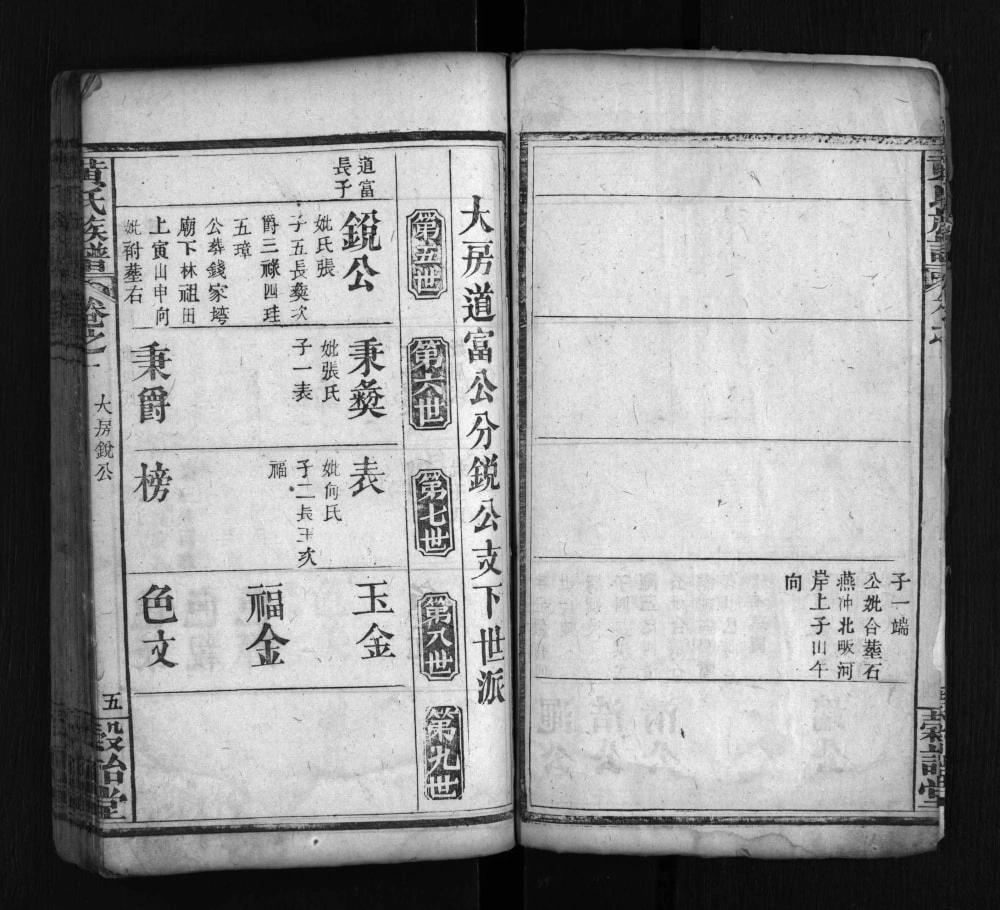 子一端
公妣合塟石
燕冲北畈河
岸上子山午
向
大房道富公分銳公支下世派
第五世
第六世
第七世
第八世
第九世
道富
長子
銳公
妣氏張
子五長彜次
爵三祿四珪
五璋
公葬錢家塆
廟下林祖田
上寅山申向
妣祔塟右
秉彜
妣張氏
子一表
秉爵
表
妣向氏
子二長玉次
福
榜
玉金
福金
色文
黃氏族譜
卷之一
大房銳公
五